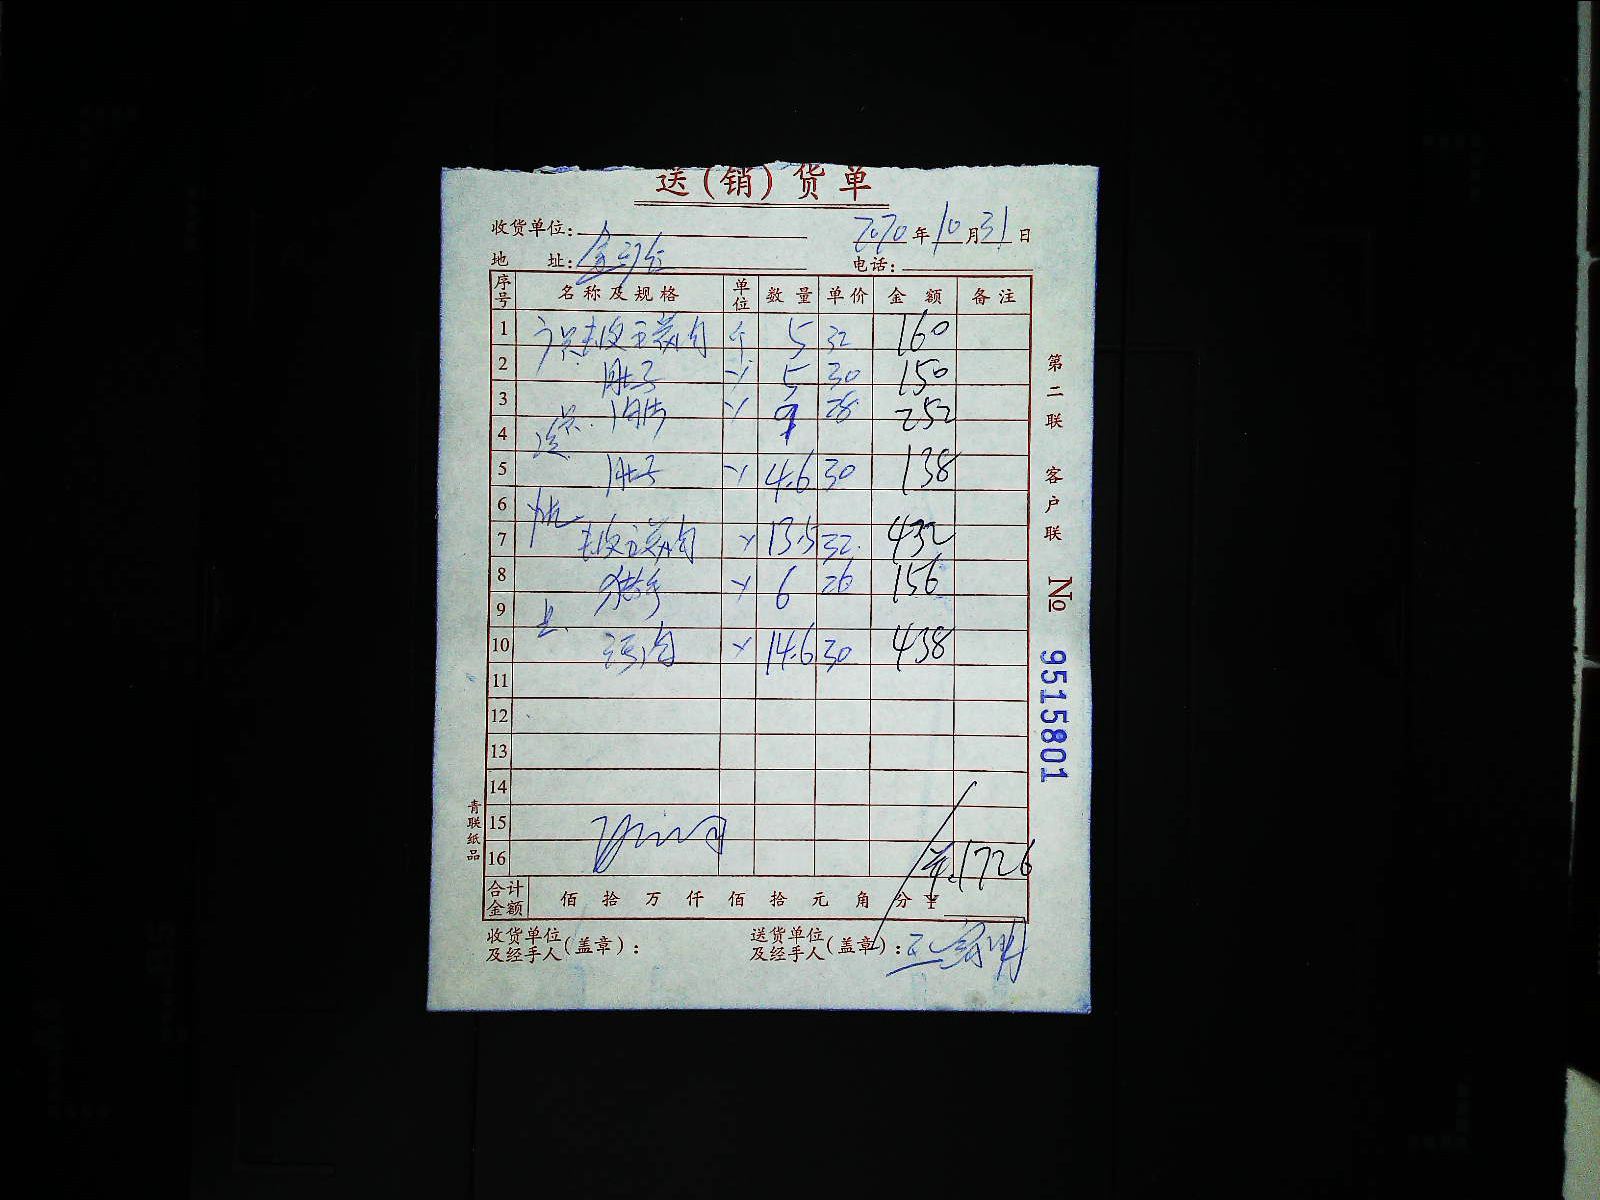 送(销)货单
收货单位: 2020年10月31日
地 址: 电话:
序号 名称及规格 单位 数量 单价 金额 备注
1 5 32 160
2 肚子 5 30 150
3 9 28 252
4
5 肚子 4.6 30 138
6
7 13.5 32 432
8 猪手 6 26 156
9
10 肉 14.6 30 438
11
12
13
14
15
16 1726
合计金额 佰 拾 万 仟 佰 拾 元 角 分 ¥
收货单位及经手人(盖章): 送货单位及经手人(盖章):
第二联 客户联 No 9515801
青联纸品